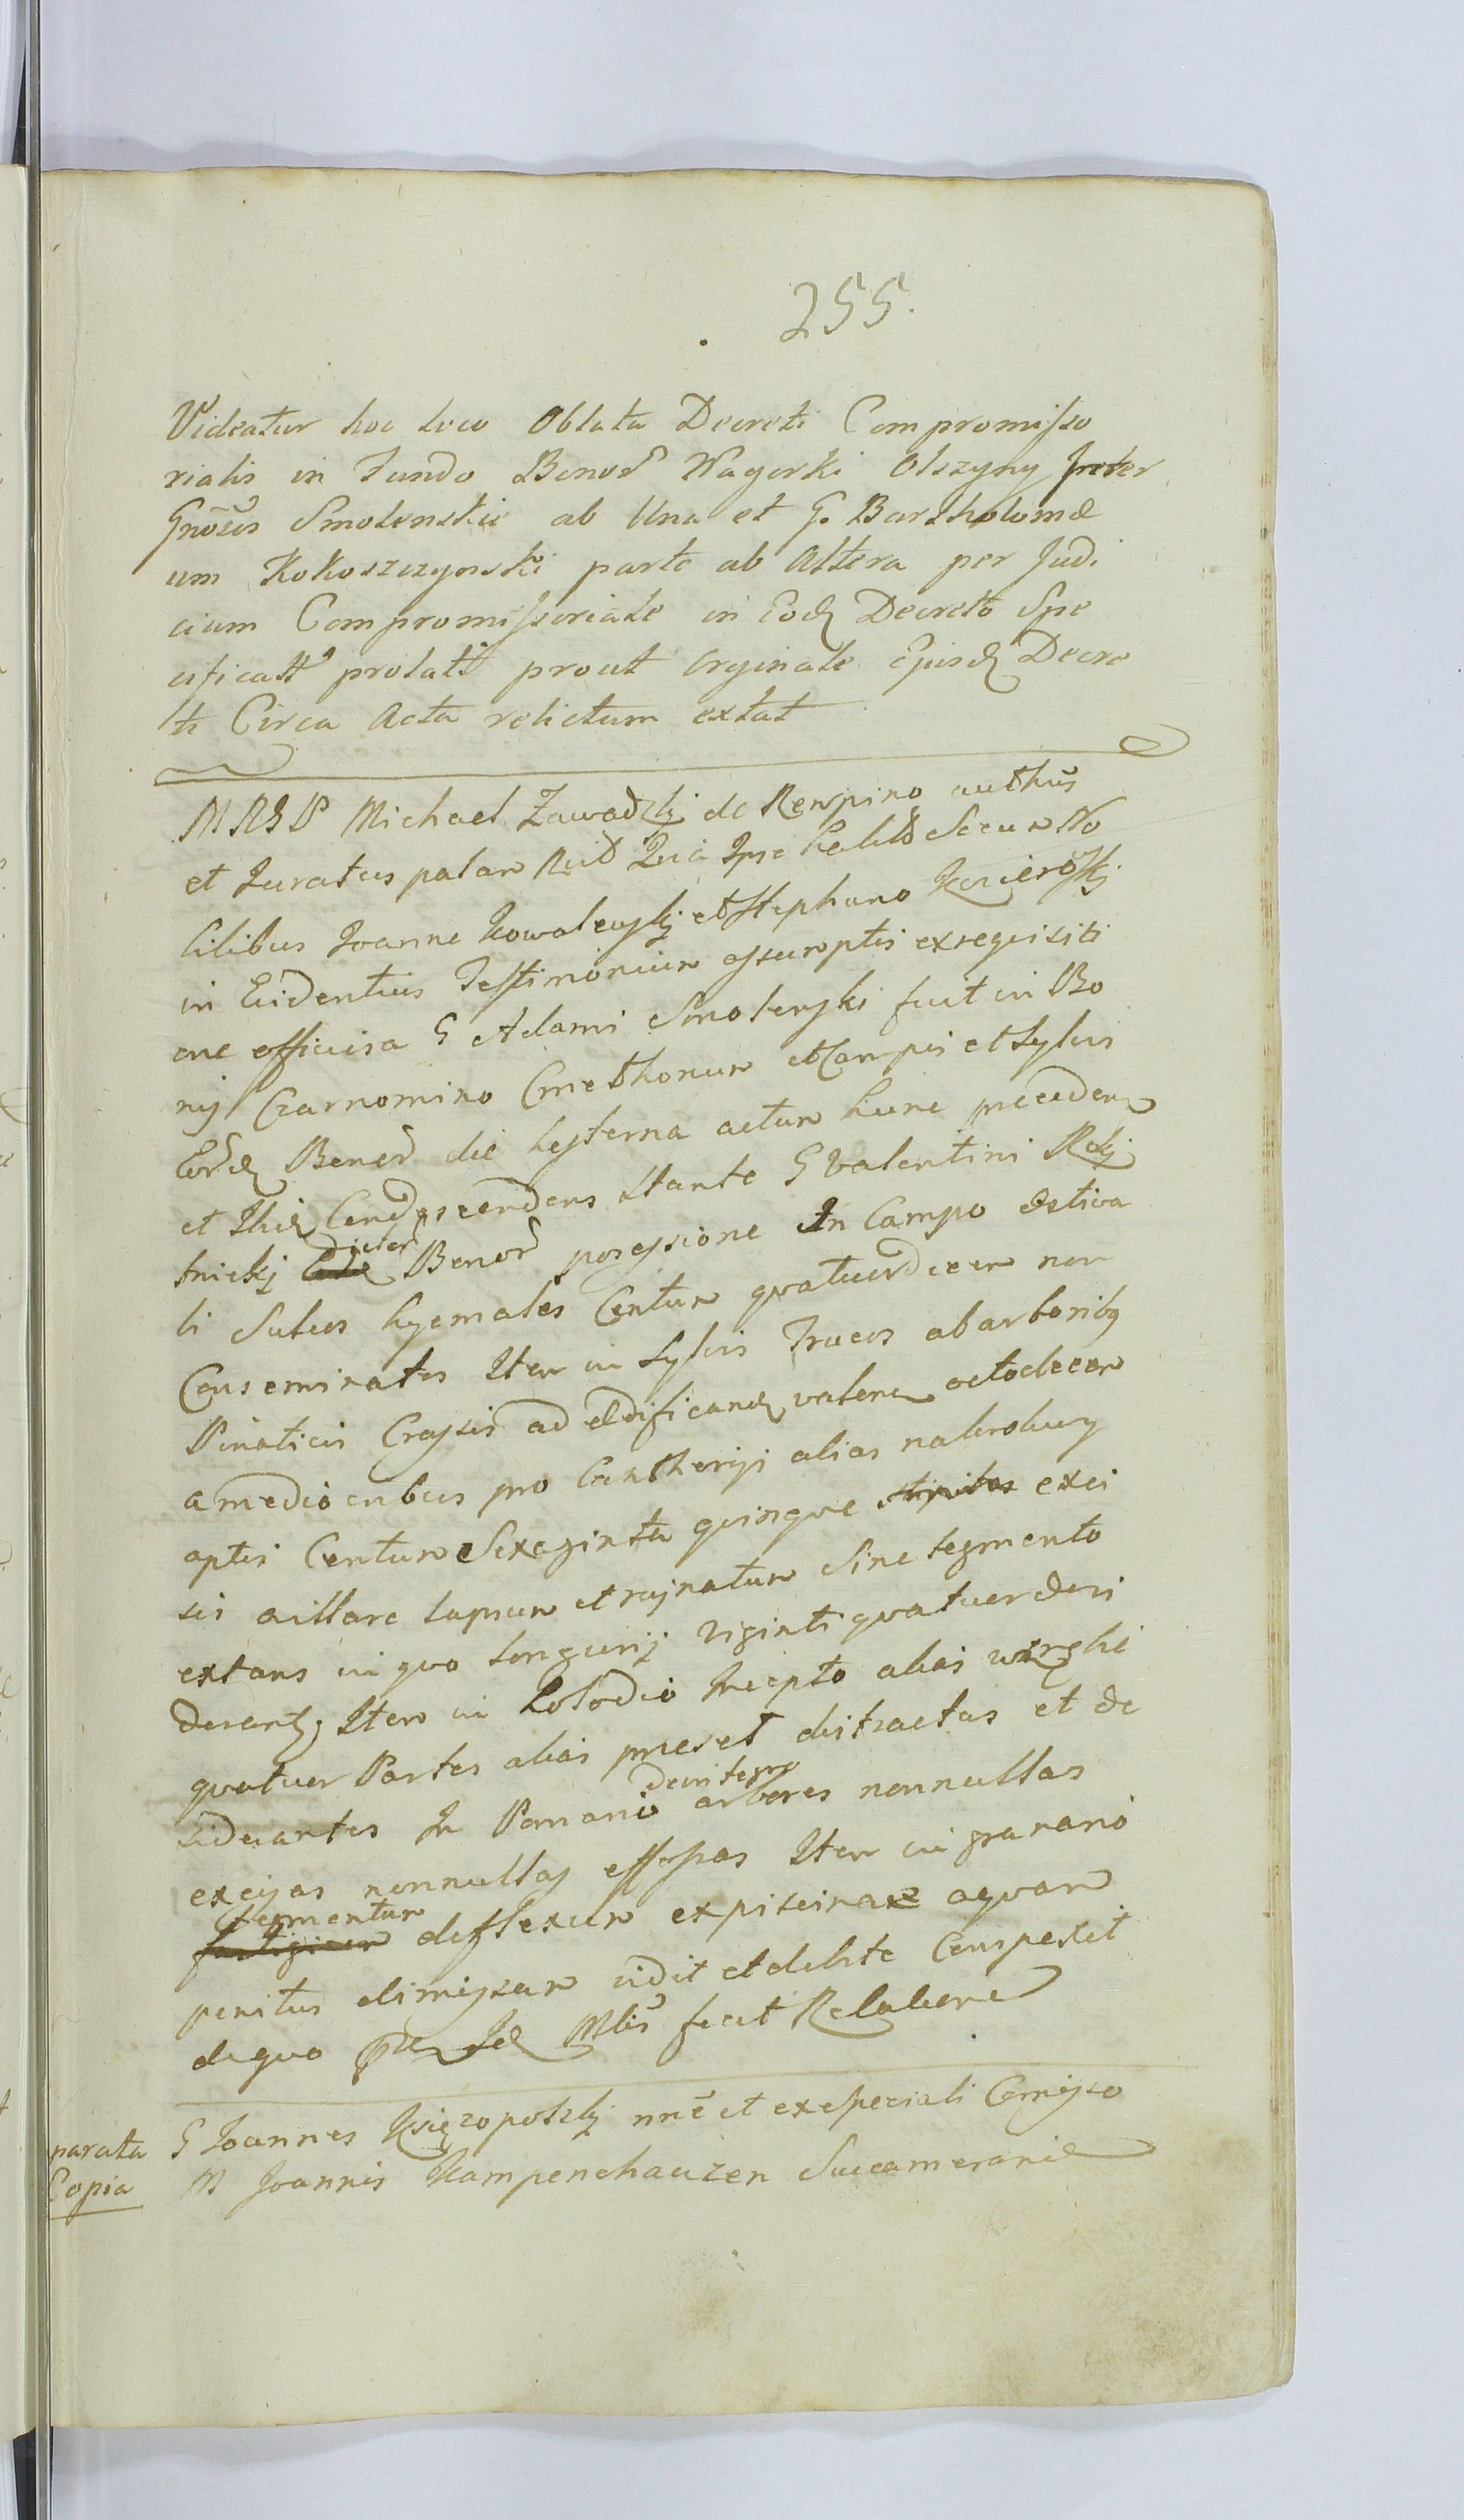 255.
Videatur hoc loco Oblata Decreti Compromisso
rialis in Fundo Bonor Wagorki Olszyny Inter
Gnosos Smolenskie ab Una et G. Bartholomæ
um Kokoszczynski parte ab Altera per Judi
cium Compromissoriale in Eod Decreto Spe
cificatt prolati prout Orginale Ejusd Decre
ti Circa Acta relictum extat
MRGP Michael Zawadzkj de Rempino authus
et Juratus palam Quia Ipse habitis Secum No
bilibus Joanne Kowalewskj et Stephano Kozieroskj
in Evidentius Testimonium assumptis exrequisiti
one officiosa G Adami Smolenski fuit in Bo
nis Czarnomino Cmethonum et Campis et Sylvis
Eord Bonor die hesterna actum hunc precedenẽ
et Ibid Condescendens stante G Valentini
tnickj dictor Bonor possessione In Campo æstiva
li Sulcos hyemales Centum quatuordecem non
Conseminatos Item in Sylvis Truncos ab arboribq
Pinaticis Crassis ad ædificand valenẽ octodecem
a mediocribus pro Cantherijs alias nakrokwy
aptis Centum Sexaginta quinque stipitas exci
sis villare lapsum et rujnatum Sine tegmento
extans in quo longurij Viginti quatuor desi
derantq Item in recepto alias
quatuor Partes alias distractas et de
siderantes In Pomario deintegro arbores nonnullas
excisas nonnullas effossas Item in granario
tegmentum deflexum expiscinax aquam
penitus dimissam vidit et debite Conspexit
dequo Id Mlis fecit Relationẽ
parata Copia
G Joannes Księzopolskj nne et exspeciali Comisso
M Joannis Kampenchauzen Succamerarij